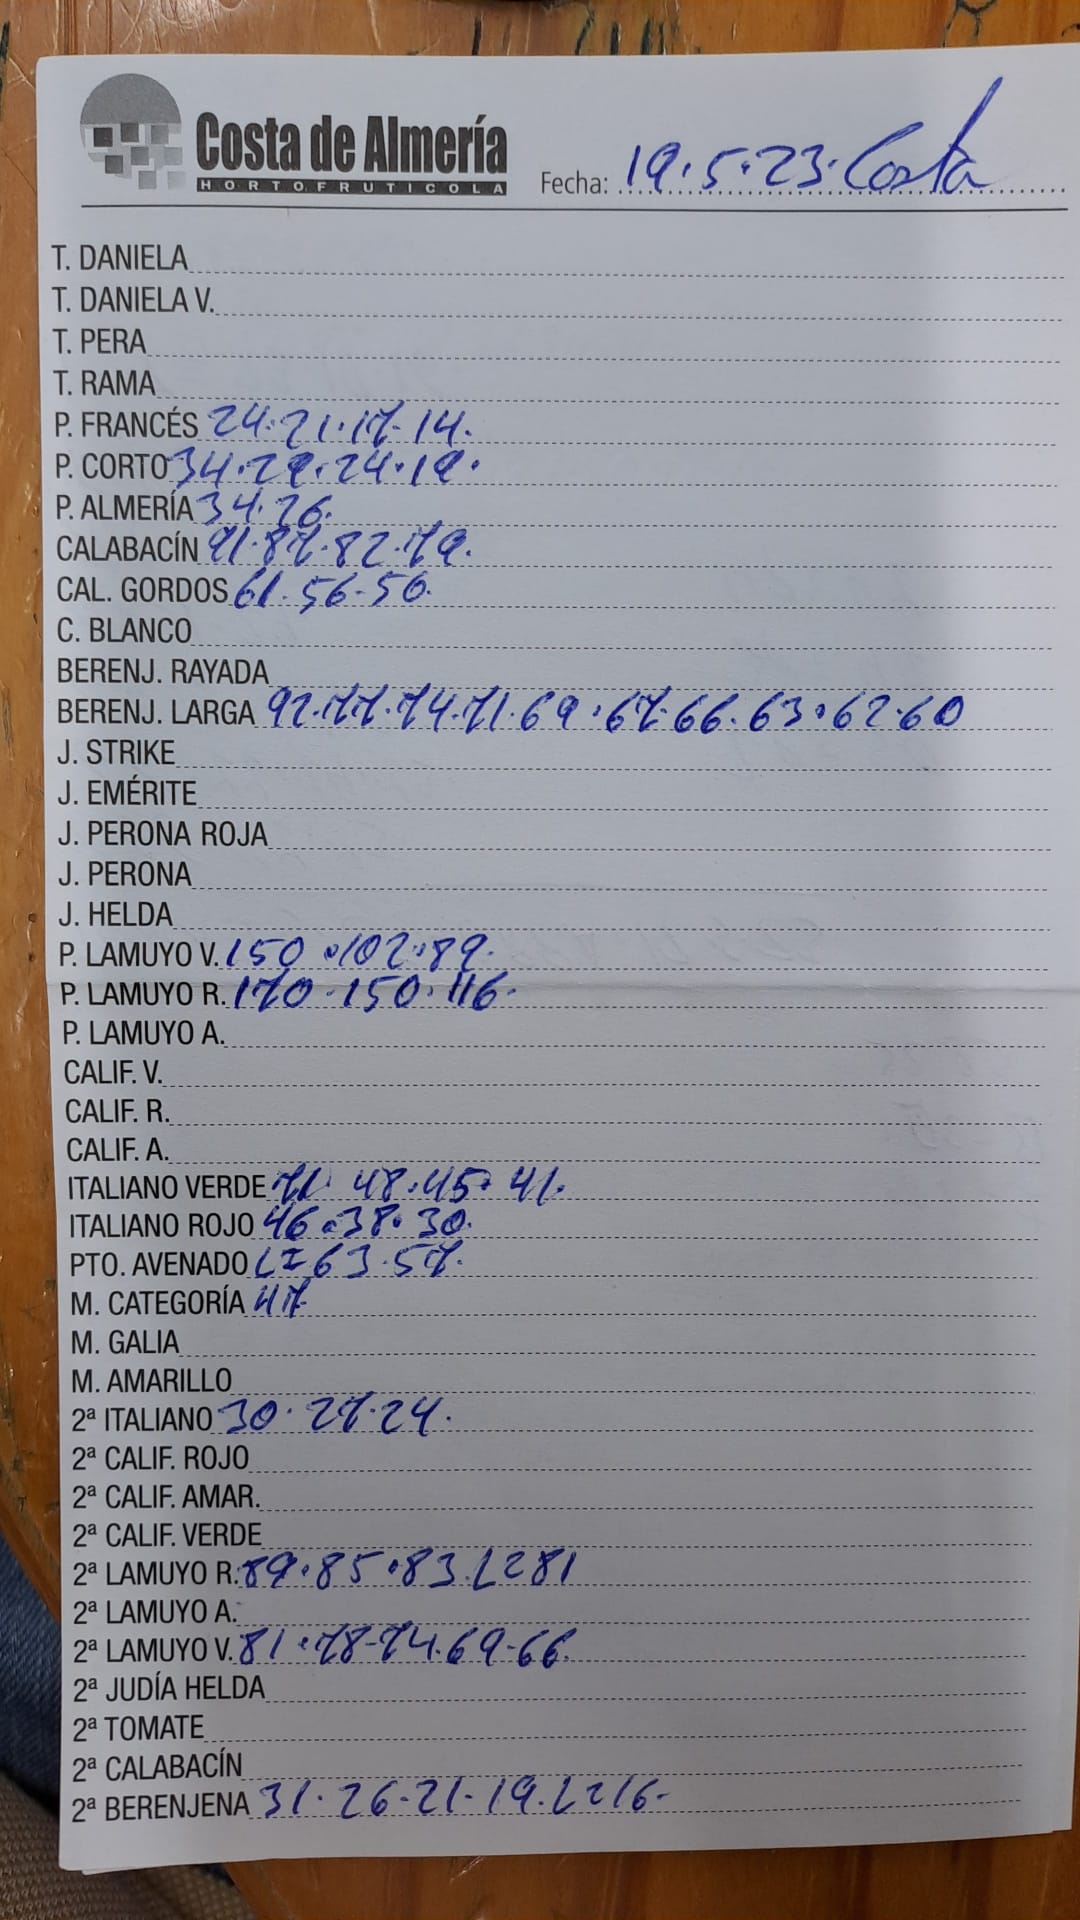 Costa de Almería
HORTOFRUTICOLA
Fecha: 19.5.23. Costa
T. DANIELA
T. DANIELA V.
T. PERA
T. RAMA
P. FRANCÉS 24.21.17.14.
P. CORTO 34.29.24.19.
P. ALMERÍA 34.26.
CALABACÍN 91.87.82.79.
CAL. GORDOS 61.56.50.
C. BLANCO
BERENJ. RAYADA
BERENJ. LARGA 92.77.74.71.69.67.66.63.62.60
J. STRIKE
J. EMÉRITE
J. PERONA ROJA
J. PERONA
J. HELDA
P. LAMUYO V. 150.102.89.
P. LAMUYO R. 170.150.116.
P. LAMUYO A.
CALIF. V.
CALIF. R.
CALIF. A.
ITALIANO VERDE 71. 48.45.41.
ITALIANO ROJO 46.38.30.
PTO. AVENADO L=63.57.
M. CATEGORÍA 47.
M. GALIA
M. AMARILLO
2ª ITALIANO 30.27.24.
2ª CALIF. ROJO
2ª CALIF. AMAR.
2ª CALIF. VERDE
2ª LAMUYO R. 89.85.83.L=81
2ª LAMUYO A.
2ª LAMUYO V. 81.78-74.69-66.
2ª JUDÍA HELDA
2ª TOMATE
2ª CALABACÍN
2ª BERENJENA 31.26-21-19.L=16-